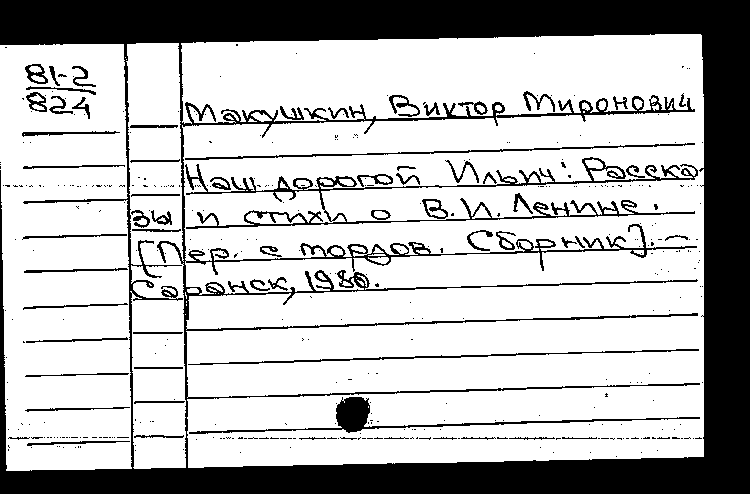 81-2
824
Макушкин, Виктор Миронович
Наш дорогой Ильич: Расска-
зы и стихи о В.И. Ленине.
[Пер. с мордов. Сборник]. –
Саранск, 1980.